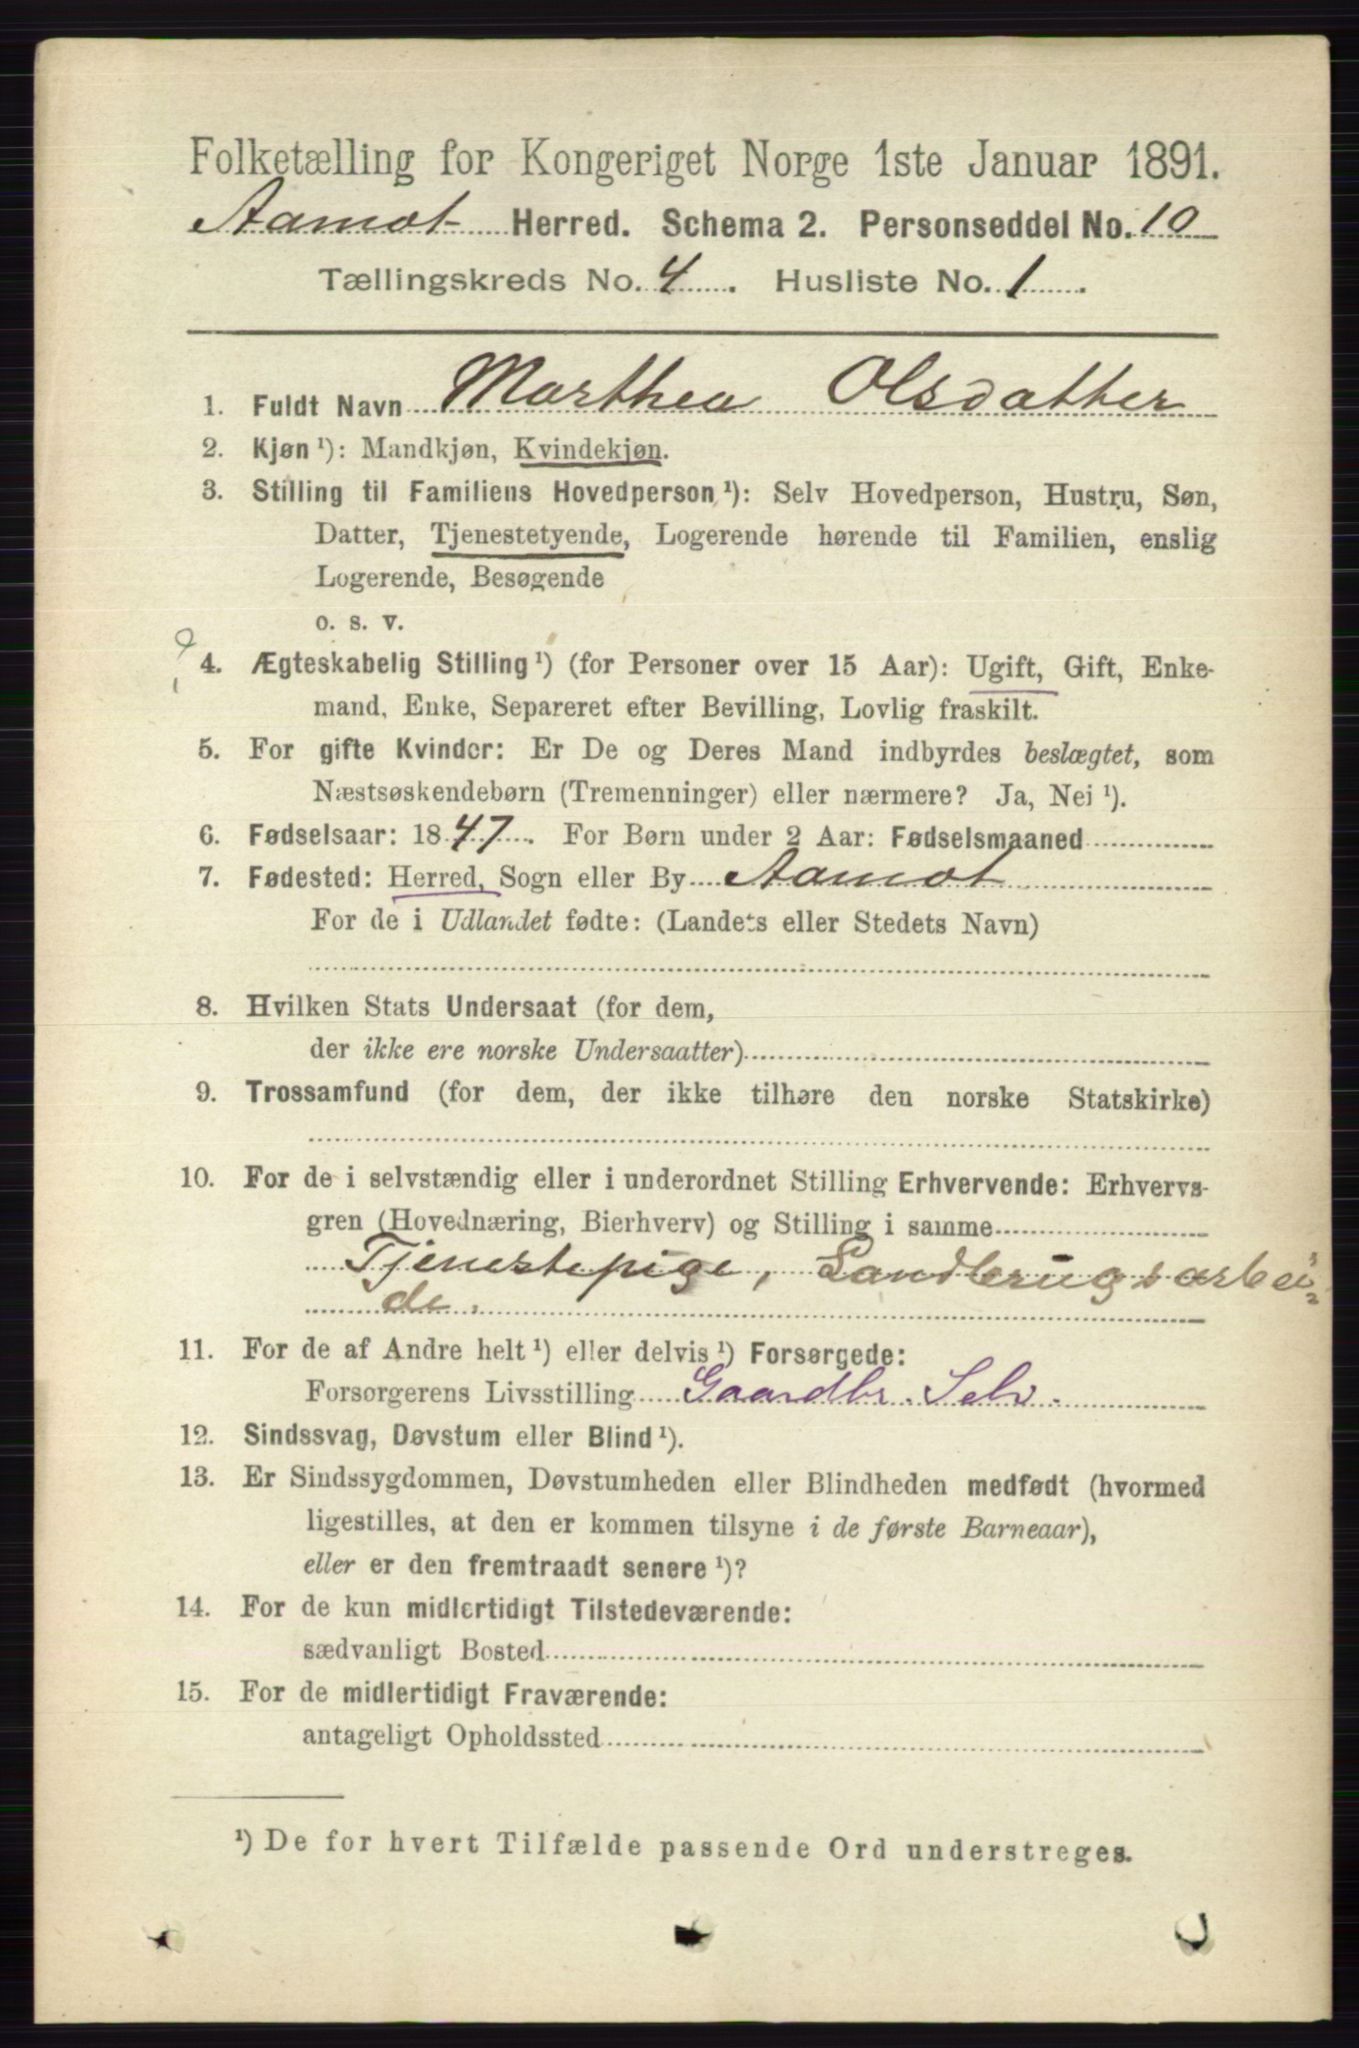 Folketælling for Kongeriget Norge 1ste Januar 1891.
Aamot Herred. Schema 2. Personseddel No. 10
Tællingskreds No. 4. Husliste No. 1.
1. Fuldt Navn Marthea Olsdatter
2. Kjøn ¹): Mandkjøn, Kvindekjøn.
3. Stilling til Familiens Hovedperson ¹): Selv Hovedperson, Hustru, Søn,
Datter, Tjenestetyende, Logerende hørende til Familien, enslig
Logerende, Besøgende
o. s. v.
4. Ægteskabelig Stilling ¹) (for Personer over 15 Aar): Ugift, Gift, Enke-
mand, Enke, Separeret efter Bevilling, Lovlig fraskilt.
5. For gifte Kvinder: Er De og Deres Mand indbyrdes beslægtet, som
Næstsøskendebørn (Tremenninger) eller nærmere? Ja, Nei ¹).
6. Fødselsaar: 1847. For Børn under 2 Aar: Fødselsmaaned
7. Fødested: Herred, Sogn eller By Aamot
For de i Udlandet fødte: (Landets eller Stedets Navn)
8. Hvilken Stats Undersaat (for dem,
der ikke ere norske Undersaatter)
9. Trossamfund (for dem, der ikke tilhøre den norske Statskirke)
10. For de i selvstændig eller i underordnet Stilling Erhvervende: Erhvervs-
gren (Hovednæring, Bierhverv) og Stilling i samme
Tjenestepige, Landbrugsarbei-
de.
11. For de af Andre helt ¹) eller delvis ¹) Forsørgede:
Forsørgerens Livsstilling Gaardbr. Selv.
12. Sindssvag, Døvstum eller Blind ¹).
13. Er Sindssygdommen, Døvstumheden eller Blindheden medfødt (hvormed
ligestilles, at den er kommen tilsyne i de første Barneaar),
eller er den fremtraadt senere ¹)?
14. For de kun midlertidigt Tilstedeværende:
sædvanligt Bosted
15. For de midlertidigt Fraværende:
antageligt Opholdssted
¹) De for hvert Tilfælde passende Ord understreges.